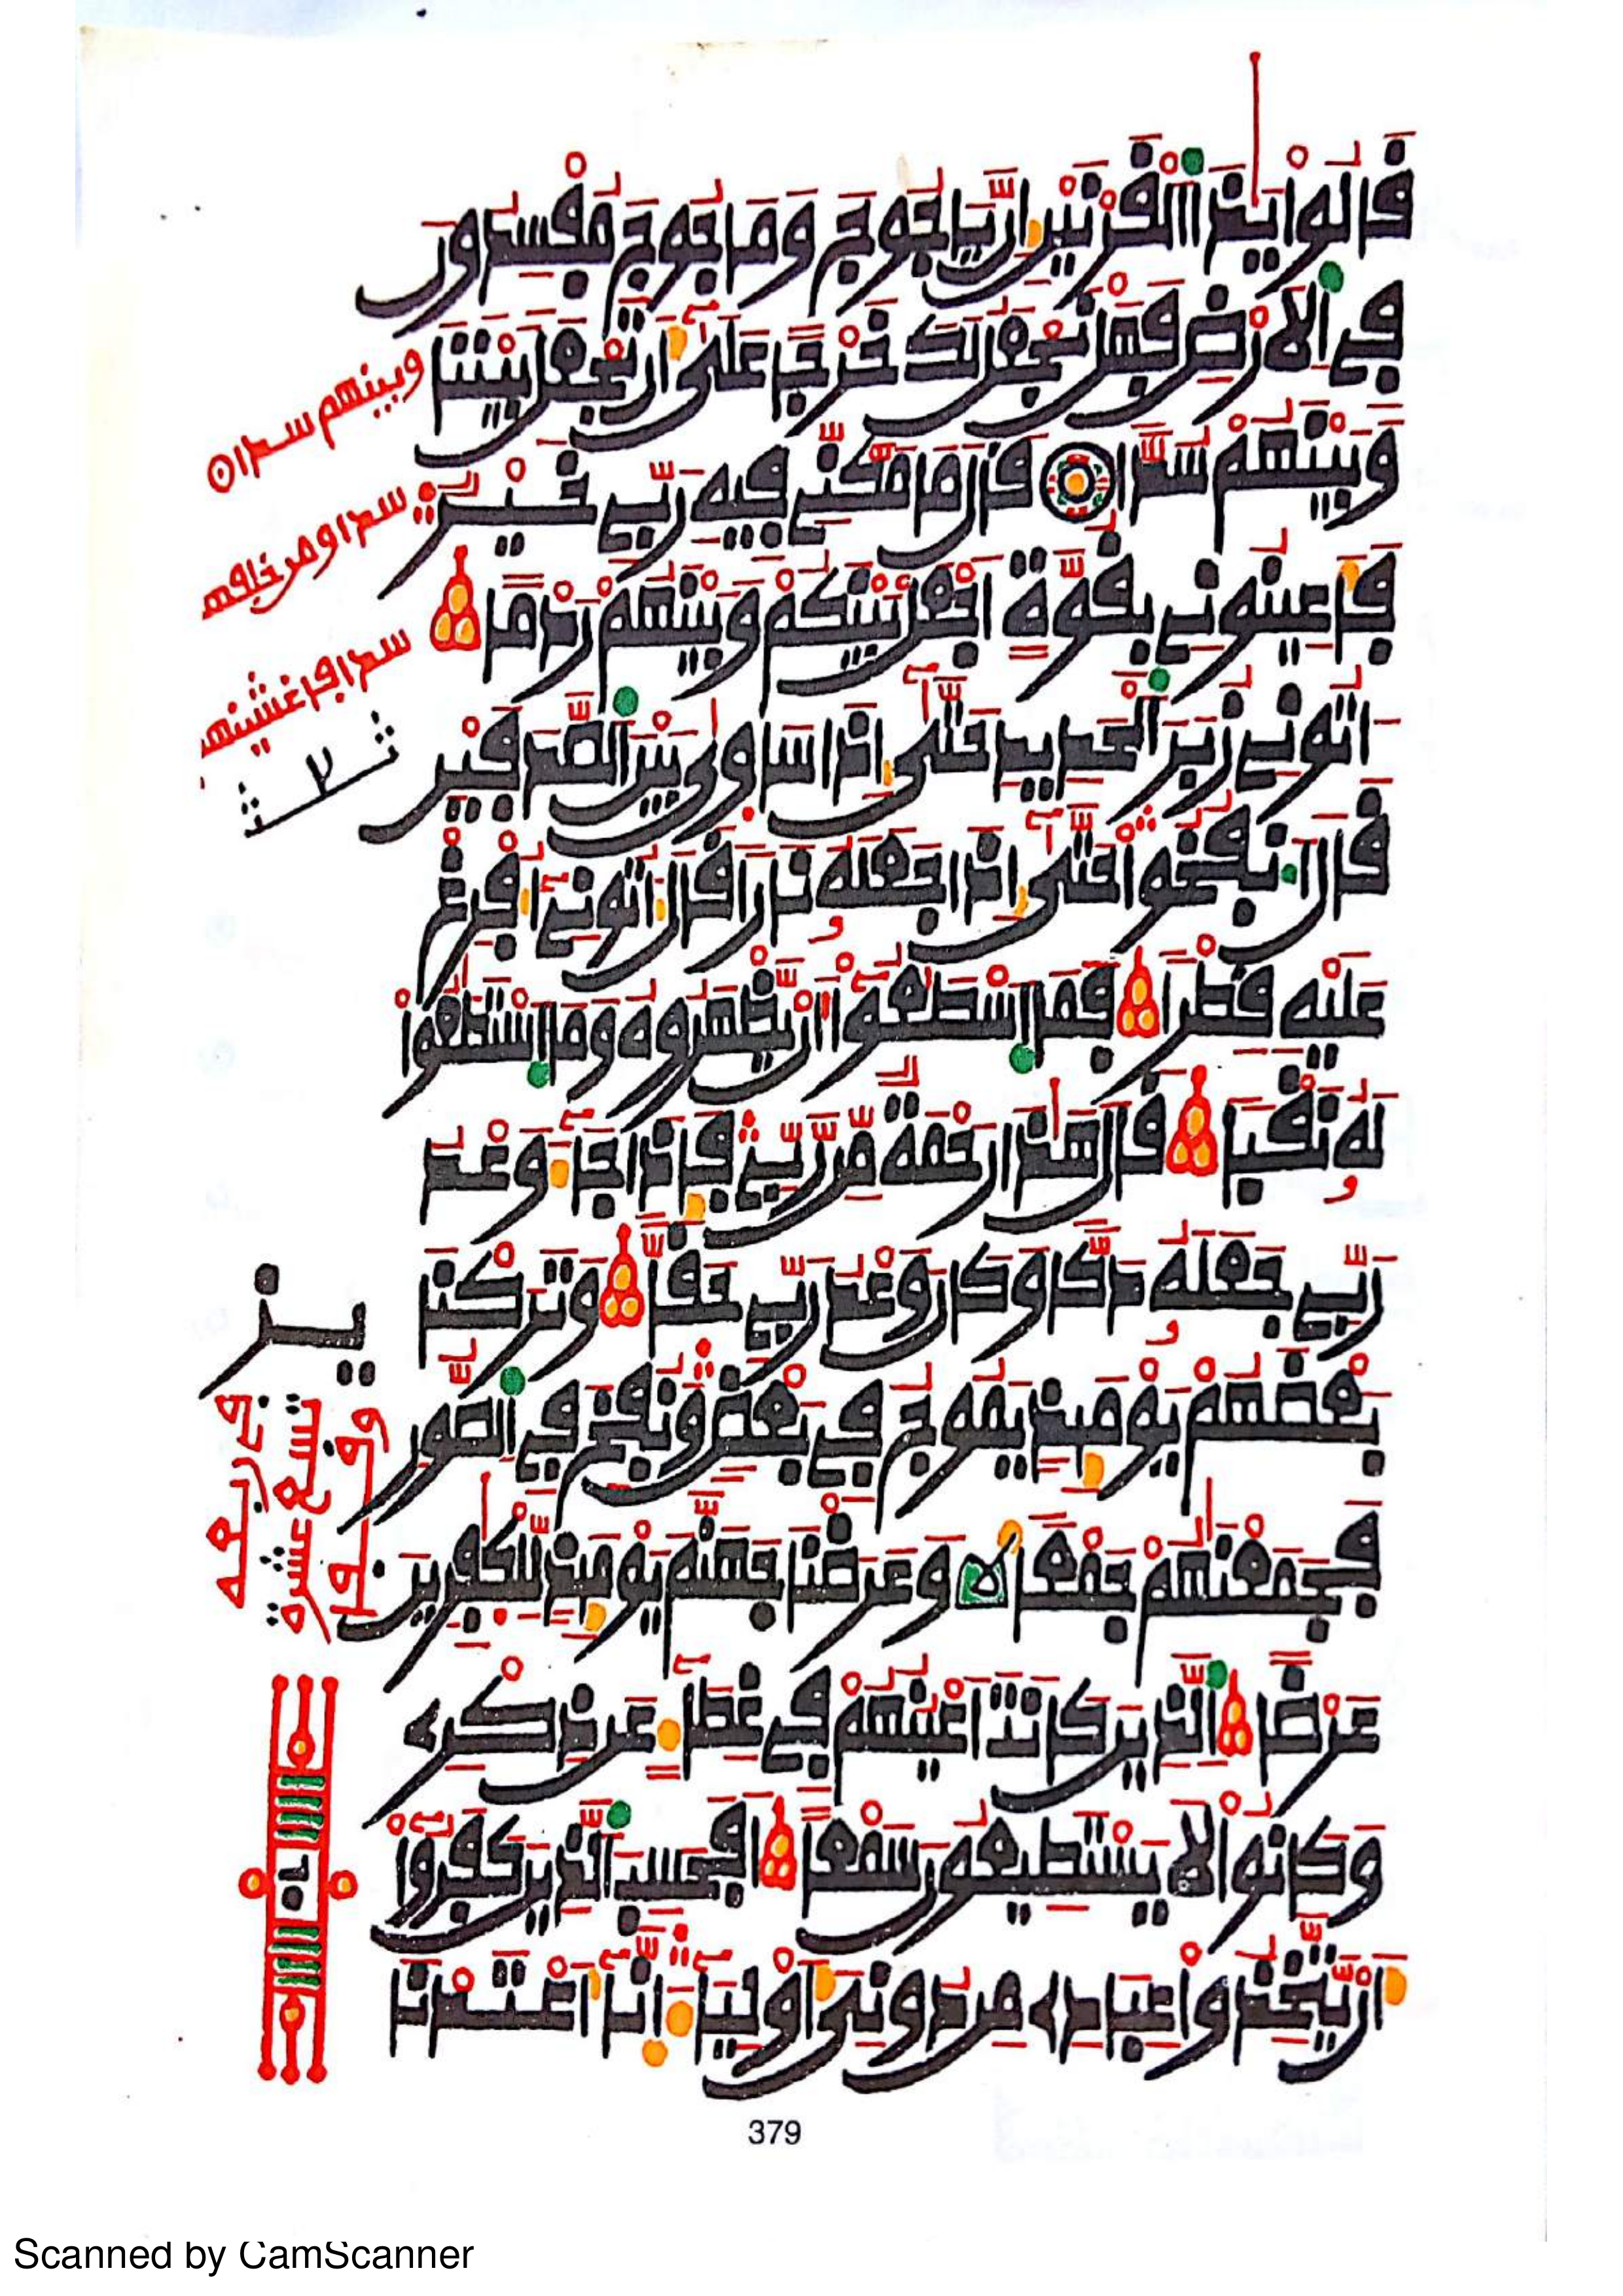 قَالُوا يَٰذَا ٱلْقَرْنَيْنِ إِنَّ يَاجُوجَ وَمَاجُوجَ مُفْسِدُونَ
فِي ٱلَارْضِ فَهَلْ نَجْعَلُ لَكَ خَرْجاً عَلَىٰ أَن تَجْعَلَ بَيْنَنَا
وَبَيْنَهُمْ سُدّاً قَالَ مَا مَكَّنِّي فِيهِ رَبِّي خَيْرٌ
فَأَعِينُونِي بِقُوَّةٍ اَجْعَلْ بَيْنَكُمْ وَبَيْنَهُمْ رَدْماً
اتُونِي زُبَرَ ٱلْحَدِيدِ حَتَّىٰ إِذَا سَاوَىٰ بَيْنَ ٱلصَّدَفَيْنِ
قَالَ ٱنفُخُوا حَتَّىٰ إِذَا جَعَلَهُ نَاراً قَالَ ءَاتُونِي أُفْرِغْ
عَلَيْهِ قِطْراً فَمَا ٱسْطَٰعُوا أَنْ يَّظْهَرُوهُ وَمَا ٱسْتَطَٰعُوا
لَهُ نَقْباً قَالَ هَٰذَا رَحْمَةٌ مِّن رَّبِّي فَإِذَا جَاءَ وَعْدُ
رَبِّي جَعَلَهُ دَكّاً وَكَانَ وَعْدُ رَبِّي حَقّاً وَتَرَكْنَا
بَعْضَهُمْ يَوْمَئِذٍ يَمُوجُ فِي بَعْضٍ وَنُفِخَ فِي ٱلصُّورِ
فَجَمَعْنَٰهُمْ جَمْعاً وَعَرَضْنَا جَهَنَّمَ يَوْمَئِذٍ لِّلْكَٰفِرِينَ
عَرْضاً ٱلَّذِينَ كَانَتَ اَعْيُنُهُمْ فِي غِطَاءٍ عَن ذِكْرِي
وَكَانُوا لَا يَسْتَطِيعُونَ سَمْعاً أَفَحَسِبَ ٱلَّذِينَ كَفَرُوا
أَنْ يَّتَّخِذُوا عِبَادِي مِن دُونِيَ أَوْلِيَاءَ إِنَّا أَعْتَدْنَا
وبينهم سدا
سدا ومن خلفهم
سدا فاغشينهم
379
Scanned by CamScanner